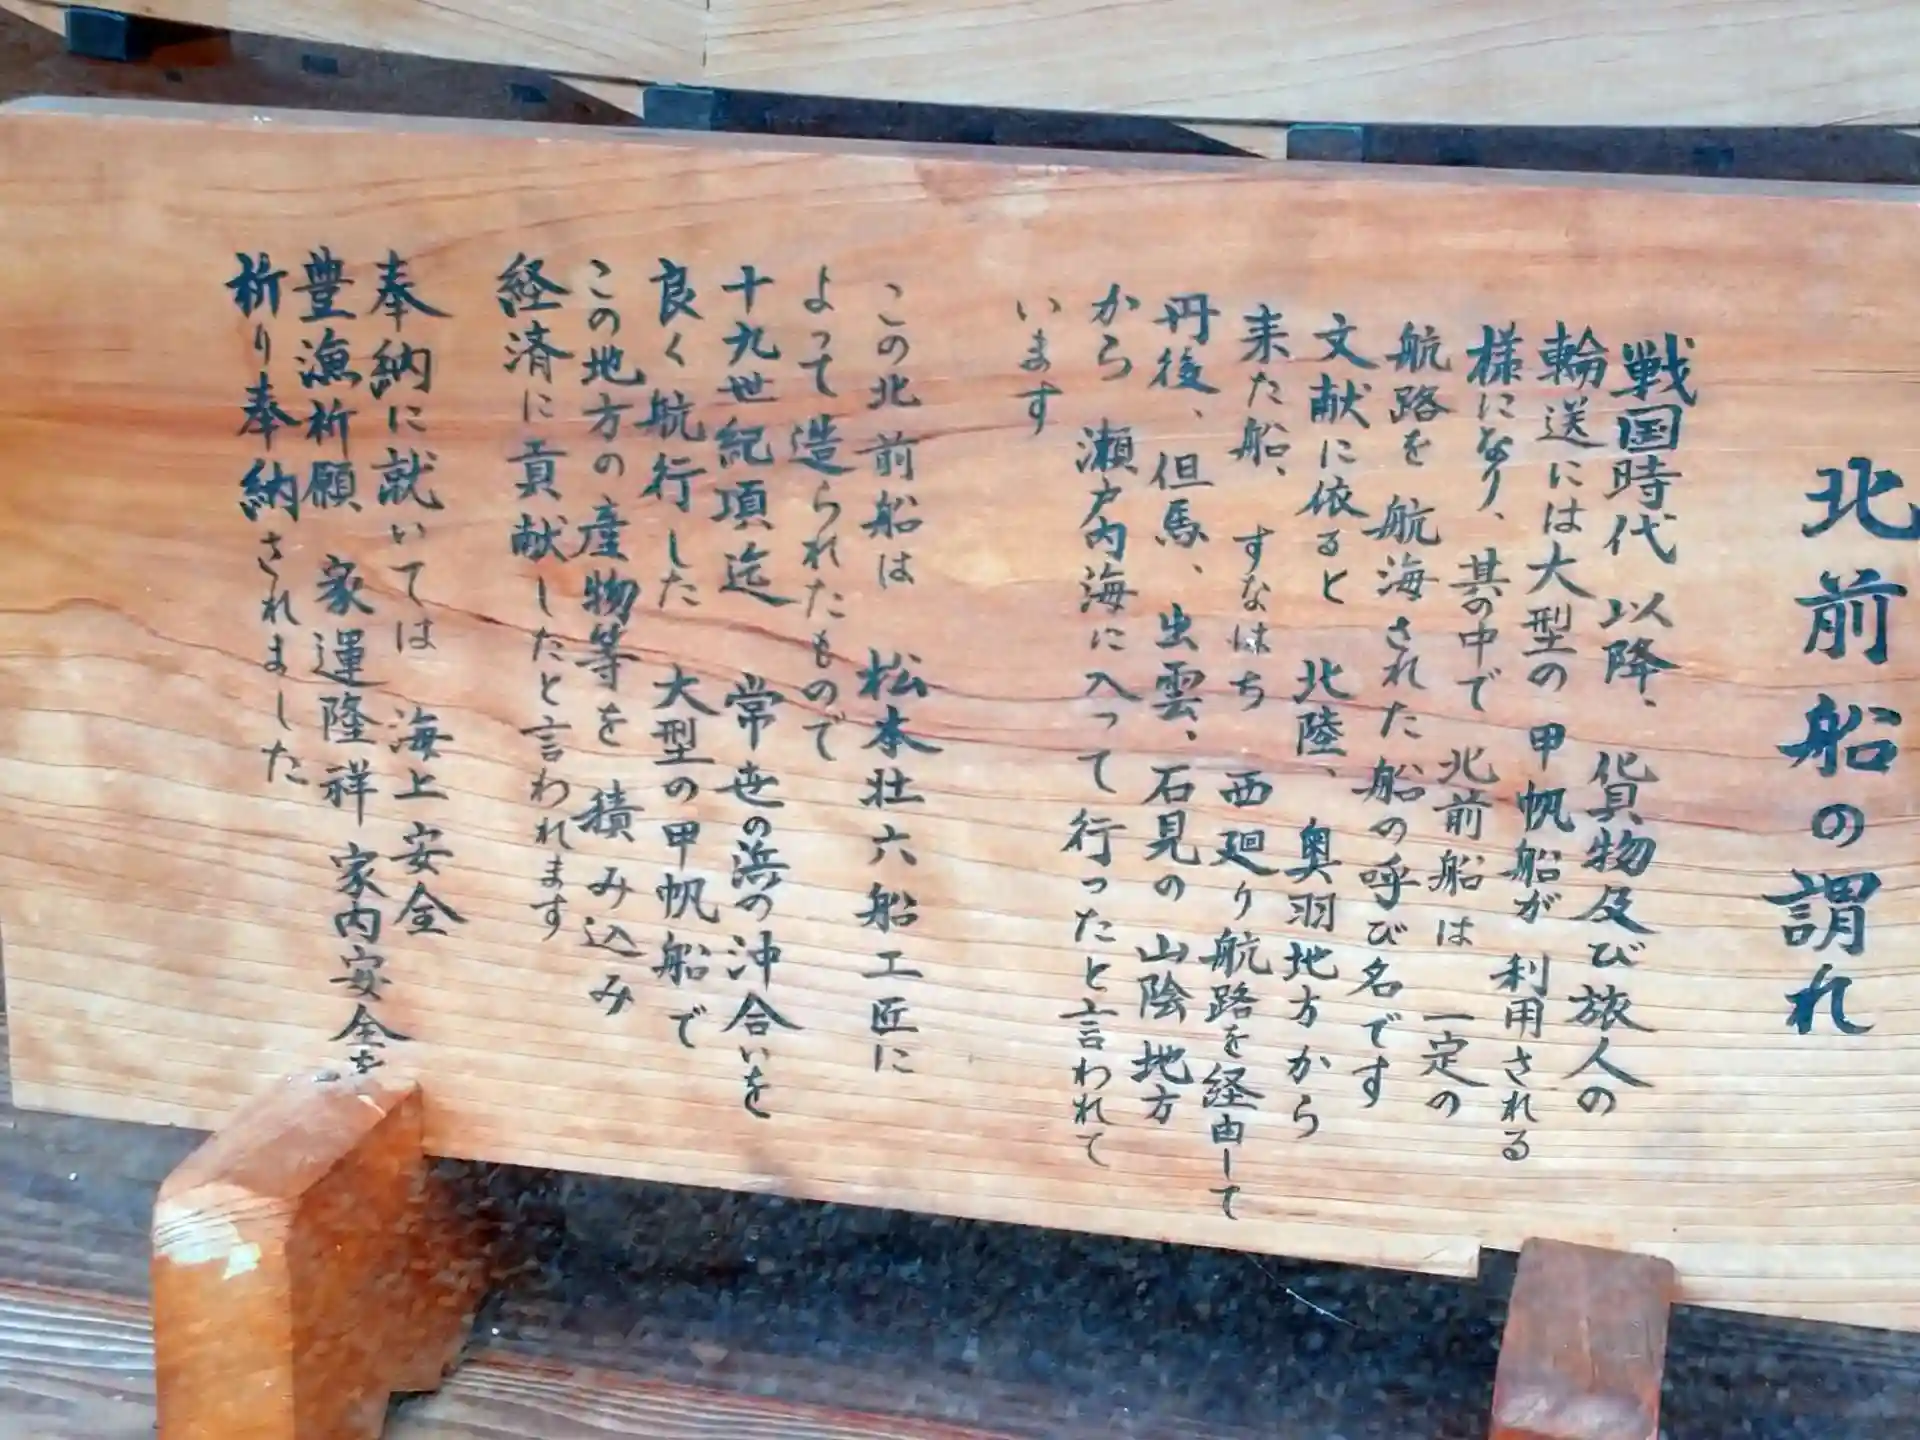 北前船の謂れ
戦国時代 以降、 貨物及び旅人の
輸送には大型の 甲帆船が 利用される
様になり、 其の中で 北前船は 一定の
航路を 航海された船の呼び名です
文献に依ると 北陸、 奥羽地方から
来た船、 すなはち 西廻り航路を経由して
丹後、但馬、出雲、石見の 山陰地方
から 瀬戸内海に入って行ったと言われて
います
この北前船は 松本壮六船工匠に
よって造られたもので
十九世紀項迄 常世の浜の沖合いを
良く航行した 大型の甲帆船で
この地方の産物等を 積み込み
経済に貢献したと言われます
奉納に就いては 海上安全
豊漁祈願 家運隆祥 家内安全を
祈り奉納されました